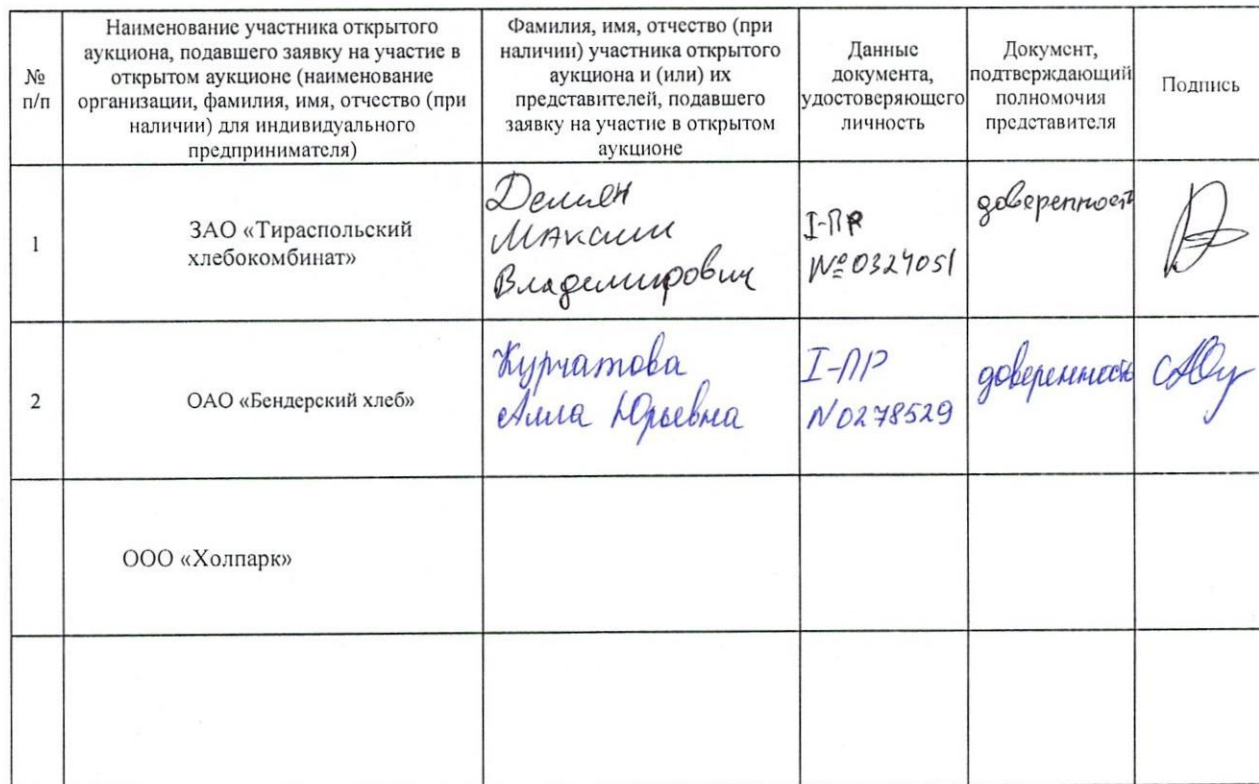 №
п/п
Наименование участника открытого
аукциона, подавшего заявку на участие в
открытом аукционе (наименование
организации, фамилия, имя, отчество (при
наличии) для индивидуального
предпринимателя)
Фамилия, имя, отчество (при
наличии) участника открытого
аукциона и (или) их
представителей, подавшего
заявку на участие в открытом
аукционе
Данные
документа,
удостоверяющего
личность
Документ,
подтверждающий
полномочия
представителя
Подпись
1
ЗАО «Тираспольский
хлебокомбинат»
Демиян
Максим
Владимирович
I-ПР
№0324051
доверенность
2
ОАО «Бендерский хлеб»
Курчатова
Алла Юрьевна
I-ПР
N0278529
доверенность
ООО «Холпарк»